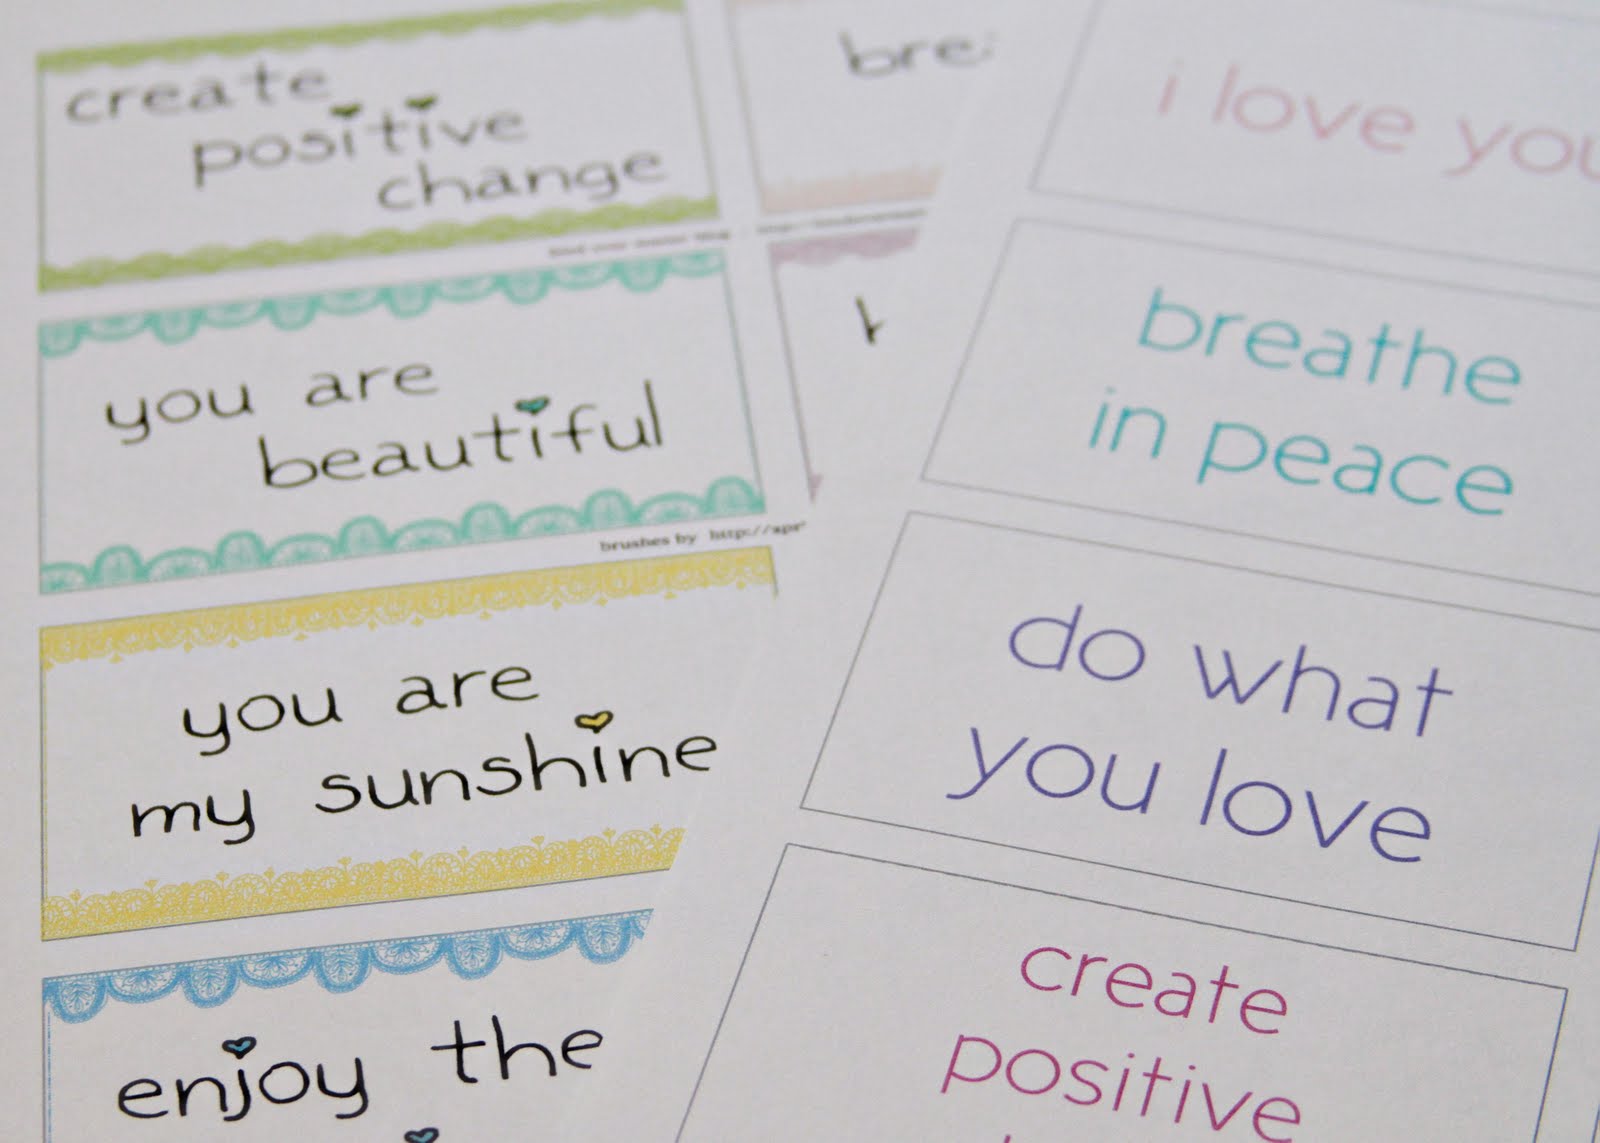 create
positive
change
you are
beautiful
brushes by http://
you are
my sunshine
enjoy the
i love you
breathe
in peace
do what
you love
create
positive